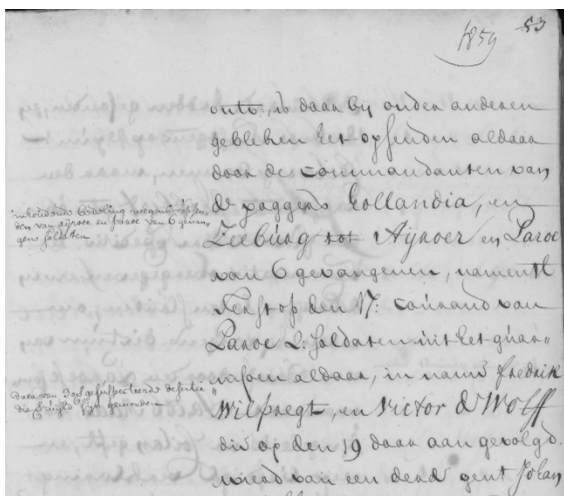 1859
53
onts, is daar by onder anderen
gebleken het opsenden aldaar
door de Commandanten van
de paggers Hollandia, en
Zeeburg tot Aijroer en Paroe
van 6 gevangenen, namentl
Eerst op den 17: Courand van
Paroe 2: soldaten uit het guar„
nisoen aldaar, in name fredrik
Wilpregt, en Victor de Wolff
die op den 19 daar aan gevolgd.
wierd van een derd gent Johan
inhoudende bedeling wegens 't opsen„
den van aijroer en paroe van 6 gevan„
gens soldaten
daar van
die